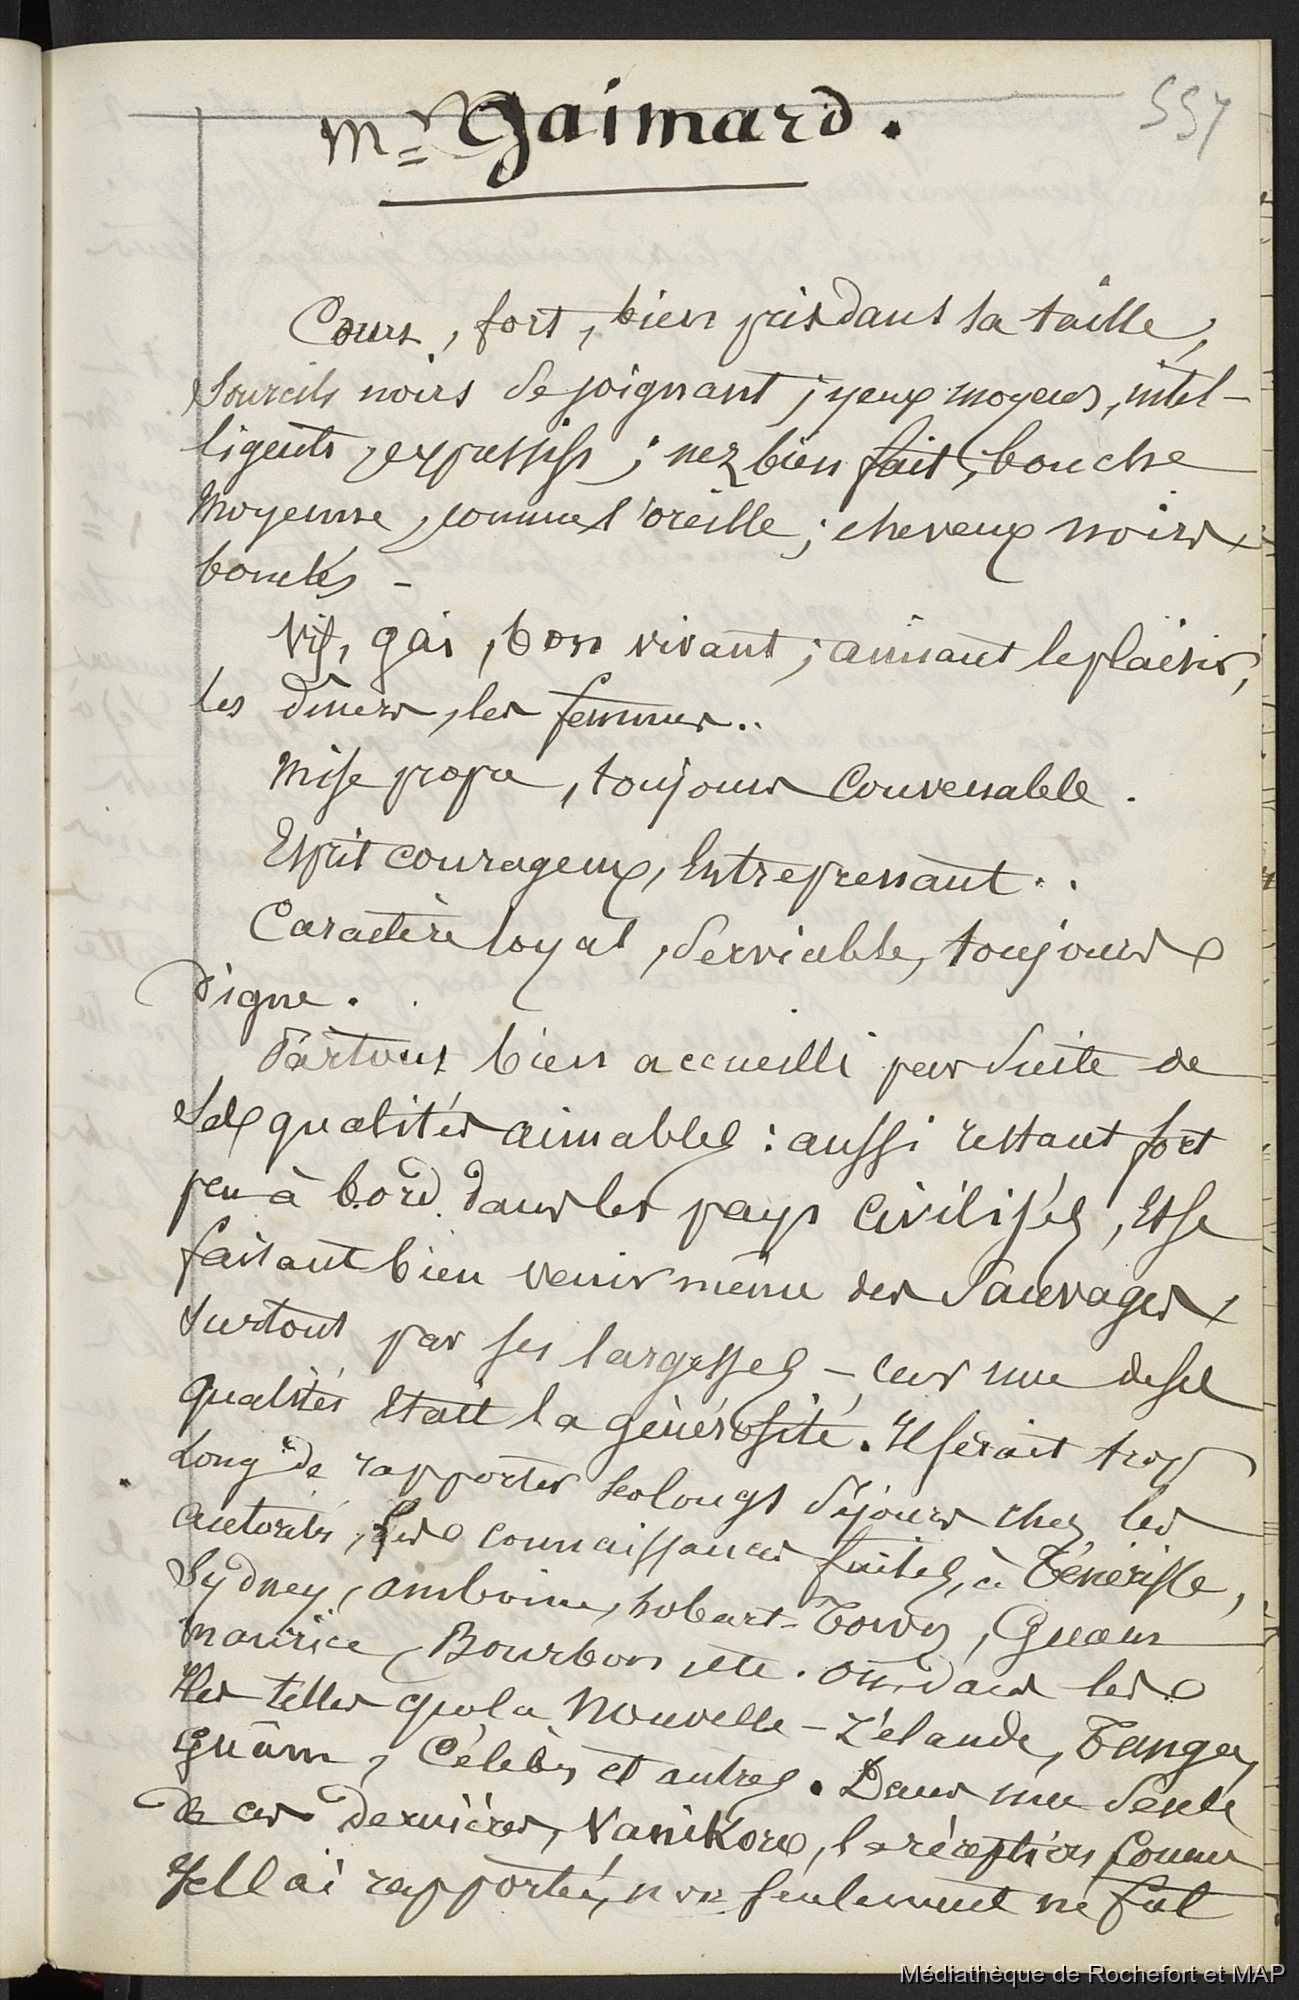 Mr Gaimard.
557
Court, fort, bien pris dans sa taille,
sourcils noirs se joignant ; yeux moyens, intel-
ligents, expressifs ; nez bien fait, bouche
moyenne, comme l'oreille ; cheveux noirs
bouclés -
Vif, gai, bon vivant ; aimant le plaisir,
les dîners, les femmes..
Mise propre, toujours convenable.
Esprit courageux, Entreprenant..
Caractère loyal, serviable, toujours
digne.
Partout bien accueilli par suite de
ses qualités aimables : aussi restant fort
peu à bord dans les pays civilisés, et se
faisant bien venir même des Sauvages
surtout par ses largesses - car une de ses
qualités était la générosité. Il serait trop
long de rapporter ses longs séjours chez les
autorités, les connaissances faites, à Ténériffe,
Sydney, Amboine, hobart-Town, Guam
Maurice, Bourbon etc. ou dans les
îles telles que la Nouvelle-Zélande, Tonga,
Guâm, Célèbes et autres. Dans une seule
de ces dernières, Vanikoro, la réception comme
je l'ai rapporté, non seulement ne fut
Médiathèque de Rochefort et MAP